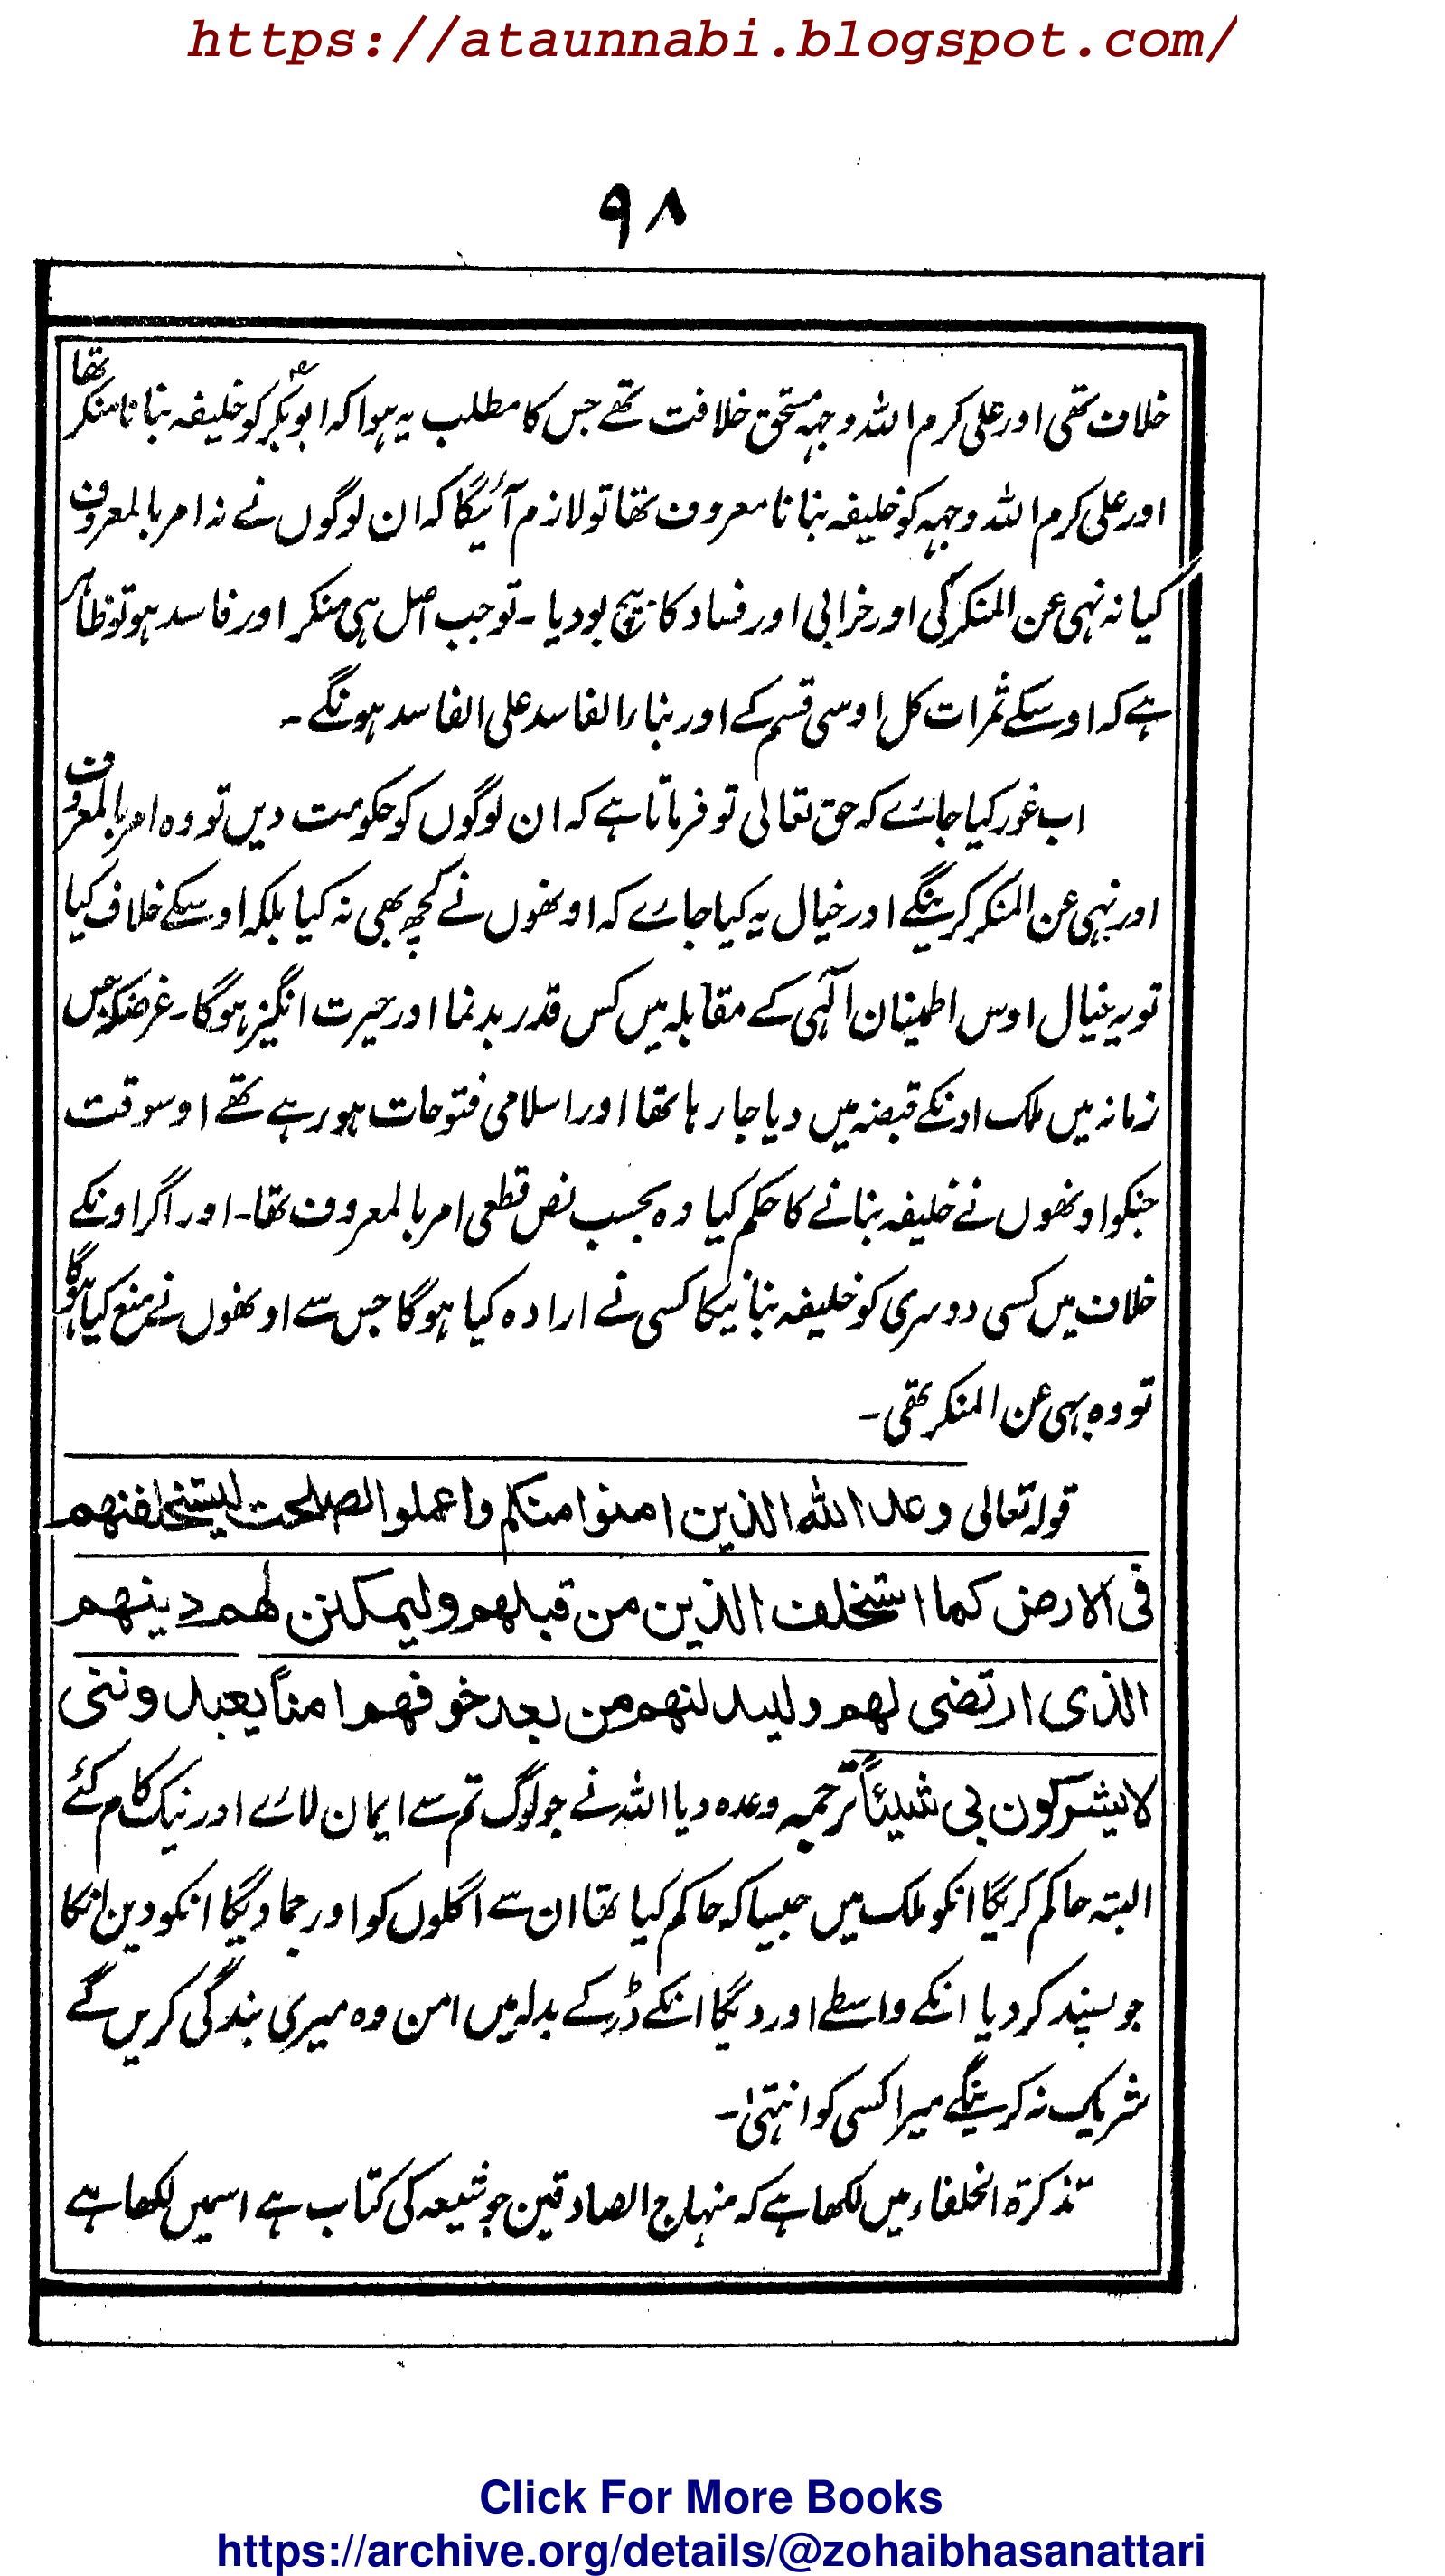 https://ataunnabi.blogspot.com/
۹۸
خلاف تھی اور علی کرم اللہ وجہہ مستحق خلافت تھے جس کا مطلب یہ ہوا کہ ابوبکرؓ کو خلیفہ بنانا منکر تھا
اور علی کرم اللہ وجہہ کو خلیفہ بنانا معروف تھا تو لازم آئیگا کہ ان لوگوں نے نہ امر بالمعروف
کیا نہ نہی عن المنکر کی اور خرابی اور فساد کا بیج بودیا ۔ توجب اصل ہی منکر اور فاسد ہو تو ظاہر
ہے کہ اوسکے ثمرات کل اوسی قسم کے اور بناء الفاسد علی الفاسد ہونگے ۔
اب غور کیا جاے کہ حق تعالی تو فرماتا ہے کہ ان لوگوں کو حکومت دیں تو وہ امر بالمعروف
اور نہی عن المنکر کرینگے اور خیال یہ کیا جاے کہ اونھوں نے کچھ بھی نہ کیا بلکہ اوسکے خلاف کیا
تو یہ خیال اوس اطمینان الٰہی کے مقابلہ میں کس قدر بدنما اور حیرت انگیز ہوگا ۔ غرضکہ جس
زمانہ میں ملک اونکے قبضہ میں دیا جا رہا تھا اور اسلامی فتوحات ہو رہے تھے اوسوقت
جنکو اونھوں نے خلیفہ بنانے کا حکم کیا وہ بحسب نص قطعی امر بالمعروف تھا ۔ اور اگر اونکے
خلاف میں کسی دوسری کو خلیفہ بنانیکا کسی نے ارادہ کیا ہوگا جس سے اونھوں نے منع کیا ہوگا
تو وہ نہی عن المنکر تھی ۔
قولہ تعالی وعد اللہ الذین امنوا منکم واعملوا الصلحت لیستخلفنھم
فی الارض کما استخلف الذین من قبلھم ولیمکنن لھم دینھم
الذی ارتضی لھم ولیبدلنھم من بعد خوفھم امناً یعبدوننی
لا یشرکون بی شیئاً ترجمہ وعدہ دیا اللہ نے جو لوگ تم سے ایمان لاے اور نیک کام کئے
البتہ حاکم کریگا انکو ملک میں جیسا کہ حاکم کیا تھا ان سے اگلوں کو اور جما دیگا انکو دین انکا
جو پسند کردیا انکے واسطے اور دیگا انکے ڈر کے بدلہ میں امن وہ میری بندگی کریں گے
شریک نہ کرینگے میرا کسی کو انتہیٰ ۔
تذکرۃ الخلفاء میں لکھا ہے کہ منہاج الصادقین جو شیعہ کی کتاب ہے اسمیں لکھا ہے
Click For More Books
https://archive.org/details/@zohaibhasanattari